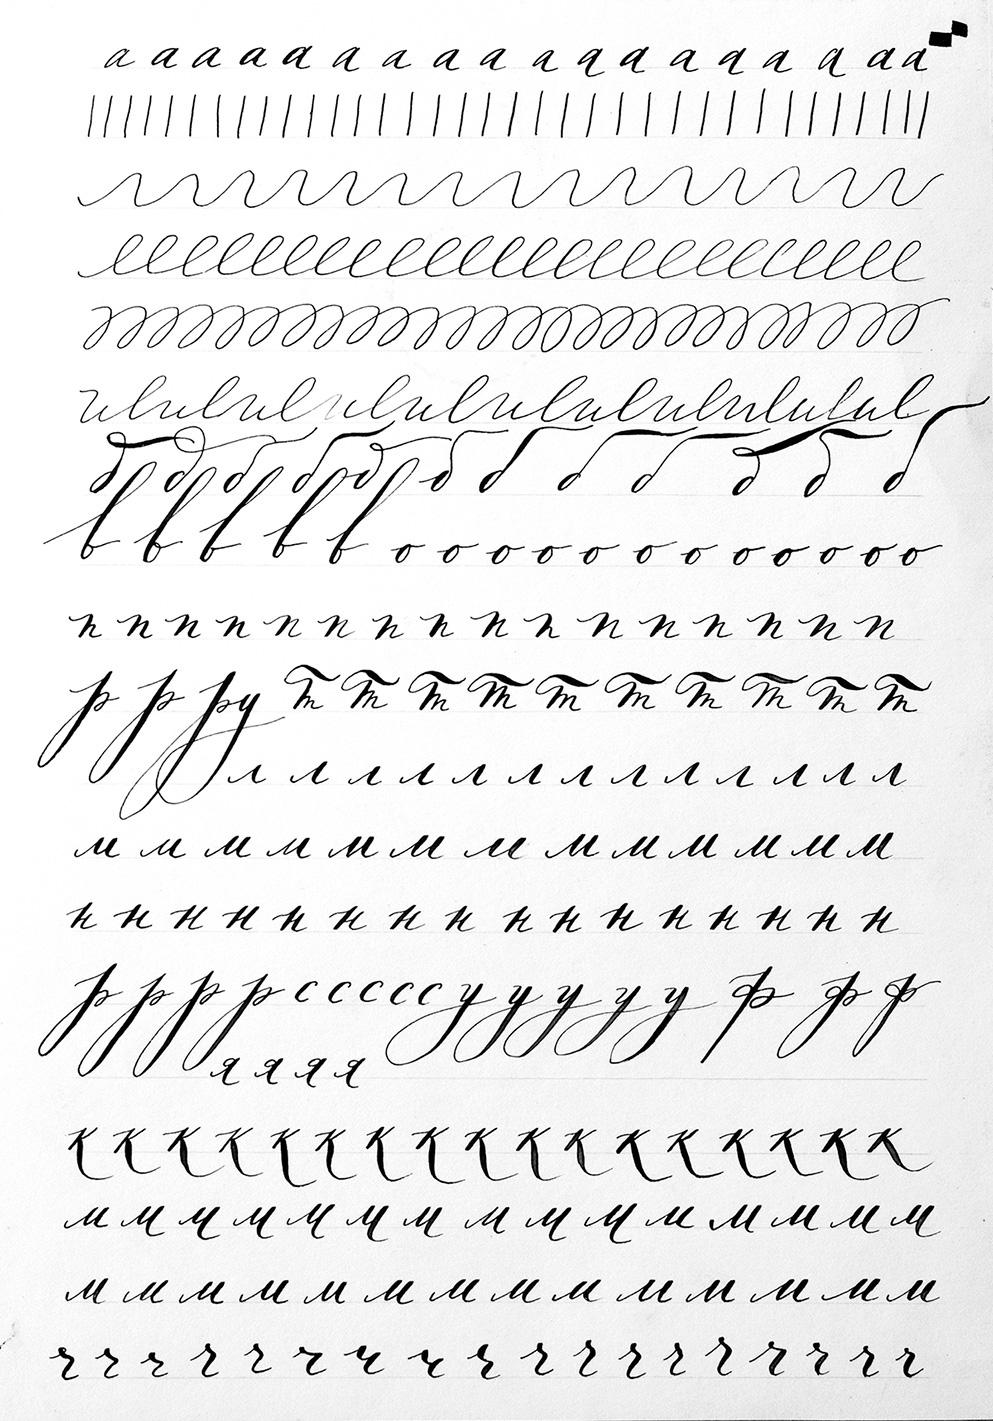 а а а а а а а а а а а а а а а а а а
б б б б б б б б б б б б
в в в в в о о о о о о о о о о о о
п п п п п п п п п п п п п п п п
р р р у т т т т т т т т т т
л л л л л л л л л л л л л
м м м м м м м м м м м м м
н н н н н н н н н н н н н н н н
р р р р с с с с с у у у у у ф ф ф
я я я я
к к к к к к к к к к к к к к к к к
м м м м м м м м м м м м м м м
м м м м м м м м м м м м м м
г г г г г г г г г г г г г г г г г г